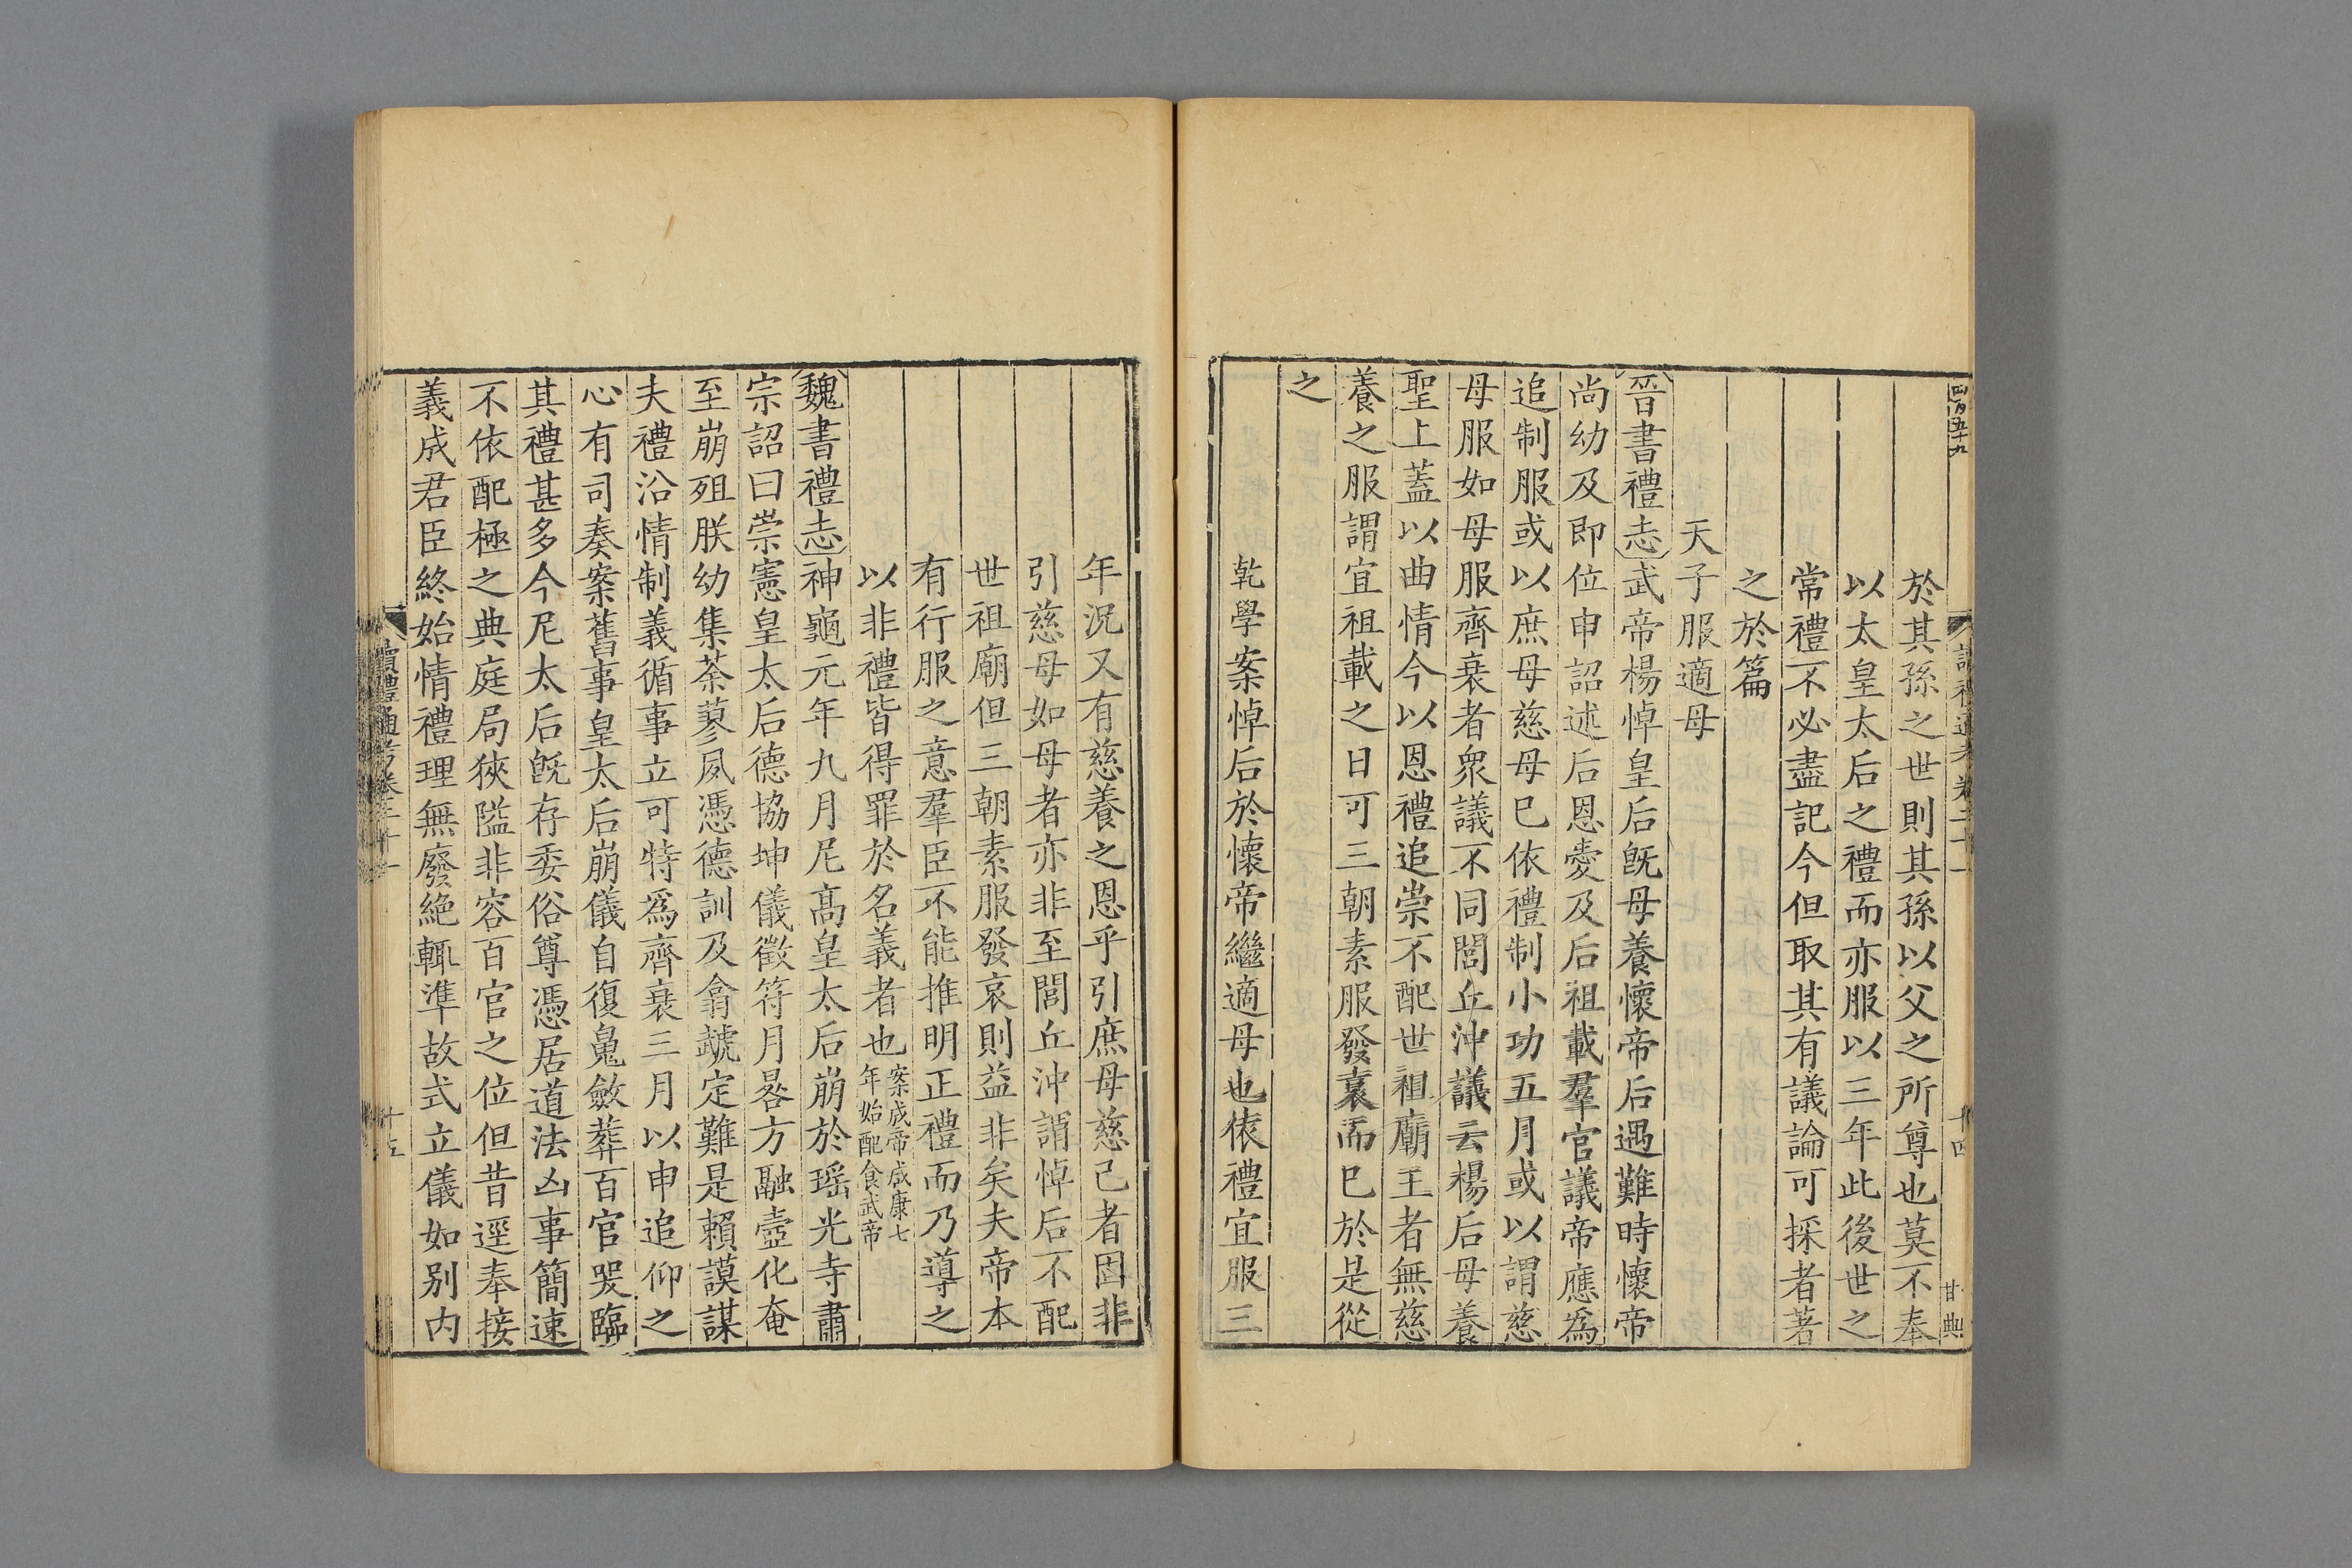 於其孫之世則其孫以父之所尊也莫不奉
以太皇太后之禮而亦服以三年此後世之
常禮不必盡記今但取其有議論可採者著
之於篇
天子服適母
晉書禮志武帝楊悼皇后旣母養懷帝后遇難時懷帝
尚幼及即位申詔述后恩愛及后祖載羣官議帝應爲
追制服或以庶母慈母巳依禮制小功五月或以謂慈
母服如母服齊衰者衆議不同閭丘沖議云楊后母養
聖上蓋以曲情今以恩禮追崇不配世祖廟王者無慈
養之服謂宜祖載之日可三朝素服發哀而巳於是從
之
乾學案悼后於懷帝繼適母也依禮宜服三
年況又有慈養之恩乎引庶母慈己者固非
引慈母如母者亦非至閭丘沖謂悼后不配
世祖廟但三朝素服發哀則益非矣夫帝本
有行服之意羣臣不能推明正禮而乃導之
以非禮皆得罪於名義者也案成帝咸康七
年始配食武帝
魏書禮志神龜元年九月尼高皇太后崩於瑶光寺肅
宗詔曰崇憲皇太后德協坤儀徵符月晷方融壼化奄
至崩殂朕幼集荼蓼夙憑德訓及翕虣定難是賴謨謀
夫禮沿情制義循事立可特爲齊衰三月以申追仰之
心有司奏案舊事皇太后崩儀自復䰟斂葬百官哭臨
其禮甚多今尼太后旣存委俗尊憑居道法凶事簡速
不依配極之典庭局狹隘非容百官之位但昔逕奉接
義成君臣終始情禮理無廢絶輒準故式立儀如别内
讀禮通考卷二十一
十五